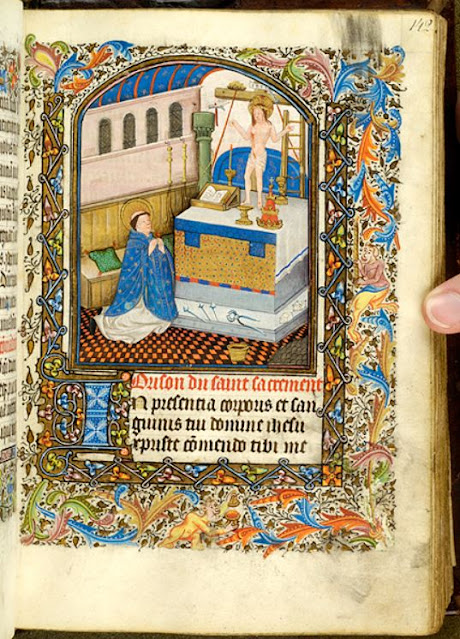 142
Orison du saint sacrement
In presentia corporis et san
guinis tui domine ihesu
xpriste cõmendo tibi me